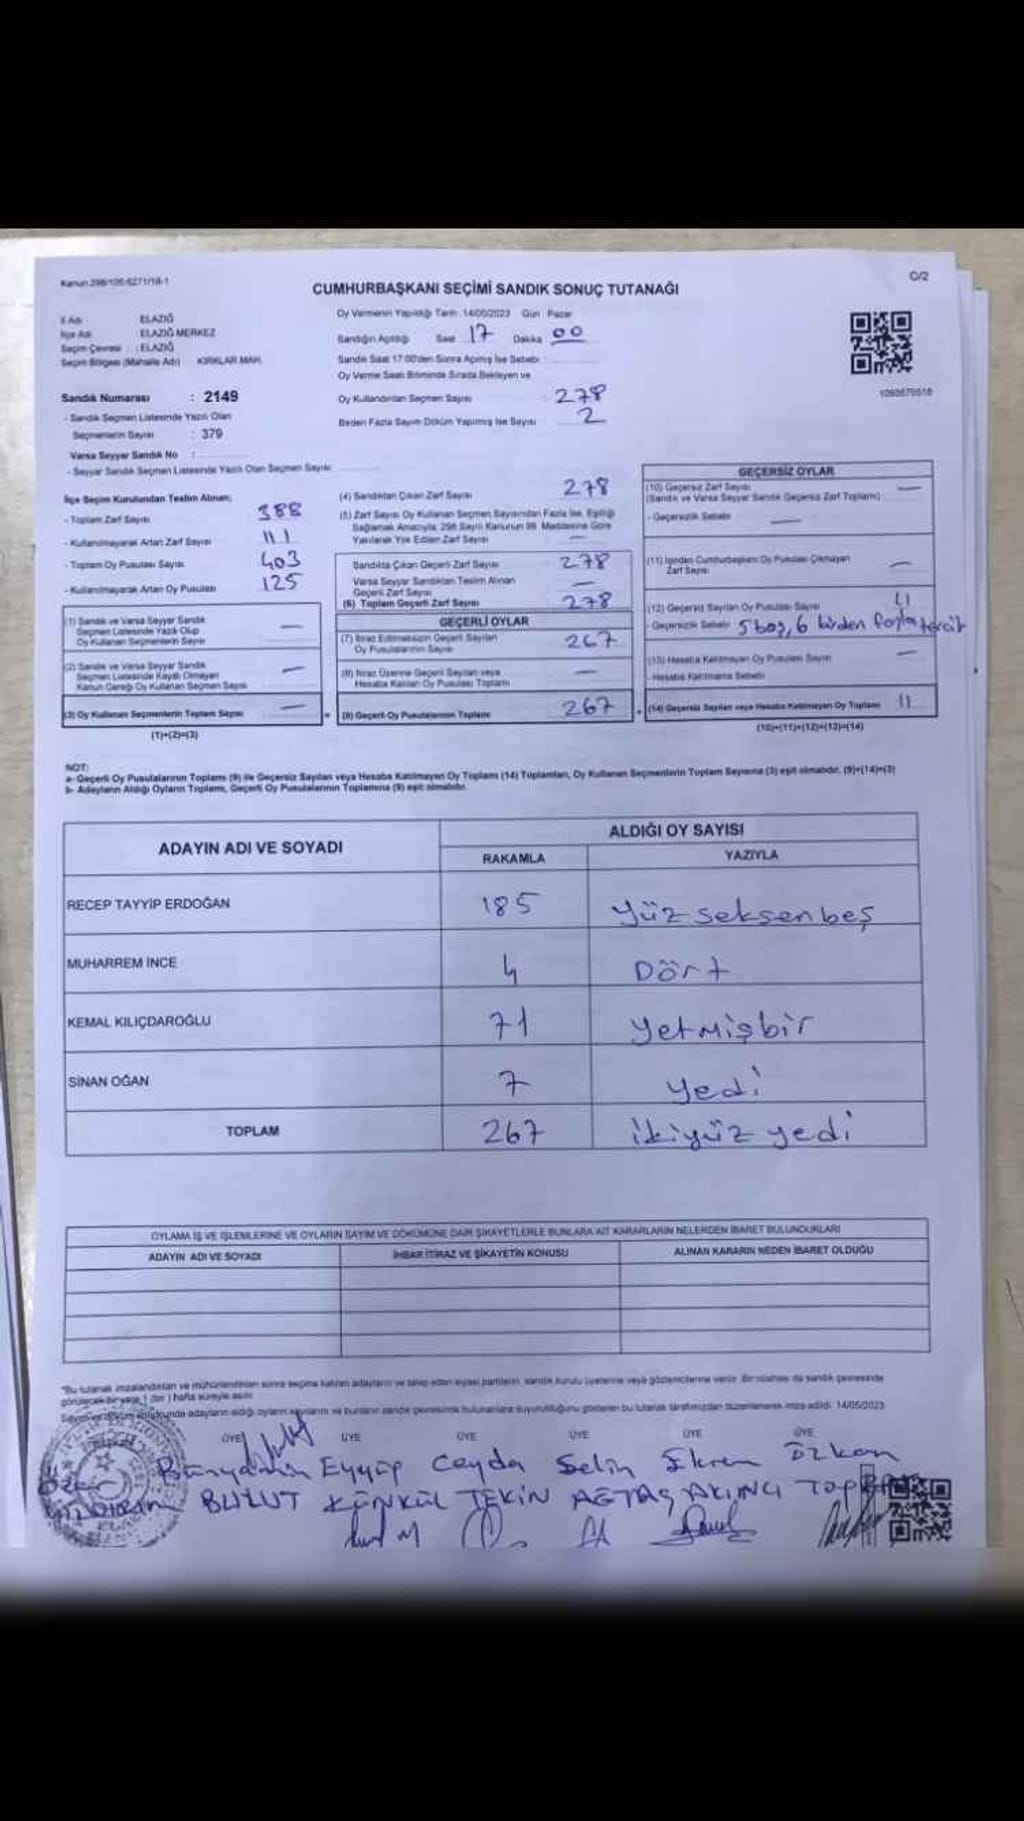 Kanun 298/105-6271/18-1
C/2
CUMHURBAŞKANI SEÇİMİ SANDIK SONUÇ TUTANAĞI
İl Adı ELAZIĞ
İlçe Adı ELAZIĞ MERKEZ
Seçim Çevresi : ELAZIĞ
Seçim Bölgesi (Mahalle Adı) KIRKLAR MAH.
Sandık Numarası : 2149
- Sandık Seçmen Listesinde Yazılı Olan
Seçmenlerin Sayısı : 379
Varsa Seyyar Sandık No :
- Seyyar Sandık Seçmen Listesinde Yazılı Olan Seçmen Sayısı
Oy Vermenin Yapıldığı Tarih :14/05/2023 Gün : Pazar
Sandığın Açıldığı Saat 17 Dakika 00
Sandık Saat 17:00'den Sonra Açılmış İse Sebebi
Oy Verme Saati Bitiminde Sırada Bekleyen ve
Oy Kullandırılan Seçmen Sayısı 278
Birden Fazla Sayım Döküm Yapılmış İse Sayısı 2
İlçe Seçim Kurulundan Teslim Alınan;
- Toplam Zarf Sayısı 388
- Kullanılmayarak Artan Zarf Sayısı 111
- Toplam Oy Pusulası Sayısı 403
- Kullanılmayarak Artan Oy Pusulası 125
(1) Sandık ve Varsa Seyyar Sandık
Seçmen Listesinde Yazılı Olup
Oy Kullanan Seçmenlerin Sayısı —
(2) Sandık ve Varsa Seyyar Sandık
Seçmen Listesinde Kayıtlı Olmayan
Kanun Gereği Oy Kullanan Seçmen Sayısı —
(3) Oy Kullanan Seçmenlerin Toplam Sayısı —
(1)+(2)=(3)
(4) Sandıktan Çıkan Zarf Sayısı 278
(5) Zarf Sayısı Oy Kullanan Seçmen Sayısından Fazla İse, Eşitliği
Sağlamak Amacıyla, 298 Sayılı Kanunun 98. Maddesine Göre
Yakılarak Yok Edilen Zarf Sayısı —
Sandıkta Çıkan Geçerli Zarf Sayısı 278
Varsa Seyyar Sandıktan Teslim Alınan
Geçerli Zarf Sayısı —
(6) Toplam Geçerli Zarf Sayısı 278
GEÇERLİ OYLAR
(7) İtiraz Edilmeksizin Geçerli Sayılan
Oy Pusulalarının Sayısı 267
(8) İtiraz Üzerine Geçerli Sayılan veya
Hesaba Katılan Oy Pusulası Toplamı —
(9) Geçerli Oy Pusulalarının Toplamı 267
GEÇERSİZ OYLAR
(10) Geçersiz Zarf Sayısı —
(Sandık ve Varsa Seyyar Sandık Geçersiz Zarf Toplamı)
- Geçersizlik Sebebi —
(11) İçinden Cumhurbaşkanı Oy Pusulası Çıkmayan
Zarf Sayısı —
(12) Geçersiz Sayılan Oy Pusulası Sayısı 11
- Geçersizlik Sebebi 5 boş, 6 birden fazla tercih
(13) Hesaba Katılmayan Oy Pusulası Sayısı —
- Hesaba Katılmama Sebebi
(14) Geçersiz Sayılan veya Hesaba Katılmayan Oy Toplamı 11
(10)+(11)+(12)+(13)=(14)
NOT:
a- Geçerli Oy Pusulalarının Toplamı (9) ile Geçersiz Sayılan veya Hesaba Katılmayan Oy Toplamı (14) Toplamları, Oy Kullanan Seçmenlerin Toplam Sayısına (3) eşit olmalıdır. (9)+(14)=(3)
b- Adayların Aldığı Oyların Toplamı, Geçerli Oy Pusulalarının Toplamına (9) eşit olmalıdır.
ADAYIN ADI VE SOYADI
ALDIĞI OY SAYISI
RAKAMLA YAZIYLA
RECEP TAYYİP ERDOĞAN 185 Yüz seksen beş
MUHARREM İNCE 4 Dört
KEMAL KILIÇDAROĞLU 71 Yetmişbir
SİNAN OĞAN 7 Yedi
TOPLAM 267 ikiyüz yedi
OYLAMA İŞ VE İŞLEMLERİNE VE OYLARIN SAYIM VE DÖKÜMÜNE DAİR ŞİKAYETLERLE BUNLARA AİT KARARLARIN NELERDEN İBARET BULUNDUKLARI
ADAYIN ADI VE SOYADI İHBAR İTİRAZ VE ŞİKAYETİN KONUSU ALINAN KARARIN NEDEN İBARET OLDUĞU
"Bu tutanak imzalandıktan ve mühürlendikten sonra seçime katılan adayların ve talep eden siyasi partilerin, sandık kurulu üyelerine veya gözlemcilerine verilir. Bir nüshası da sandık çevresinde
görülecek bir yere 1 (bir) hafta süreyle asılır.
adayların aldığı oyların sayılarını ve bunların sandık çevresinde bulunanlara duyurulduğunu gösteren bu tutanak tarafımızdan düzenlenerek imza edildi. 14/05/2023
ÜYE ÜYE ÜYE ÜYE ÜYE ÜYE
Bünyamin Eyyüp Ceyda Selin Ekrem Özkan
BULUT KÜNKÜL TEKİN AGTAŞ AKINCI